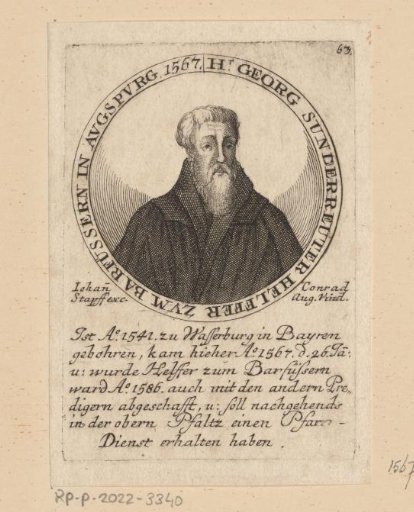 63.
Hr. GEORG SUNDERREUTTER HELFFER ZVM BARFUSSERN IN AVGSPVRG. 1567.
Iohañ Stapff exc.
Conrad Aug. Vind.
Ist Aº. 1541. zu Wasserburg in Bayren
gebohren, kam hieher Aº. 1567. d. 26. Ja:
u: wurde Helffer zum Barfüssern
ward Aº. 1586. auch mit den andern Pre-
digern abgeschafft, u: soll nachgehends
in der obern Pfaltz einen Pfarr-
Dienst erhalten haben.
1567
RP-P-2022-3340